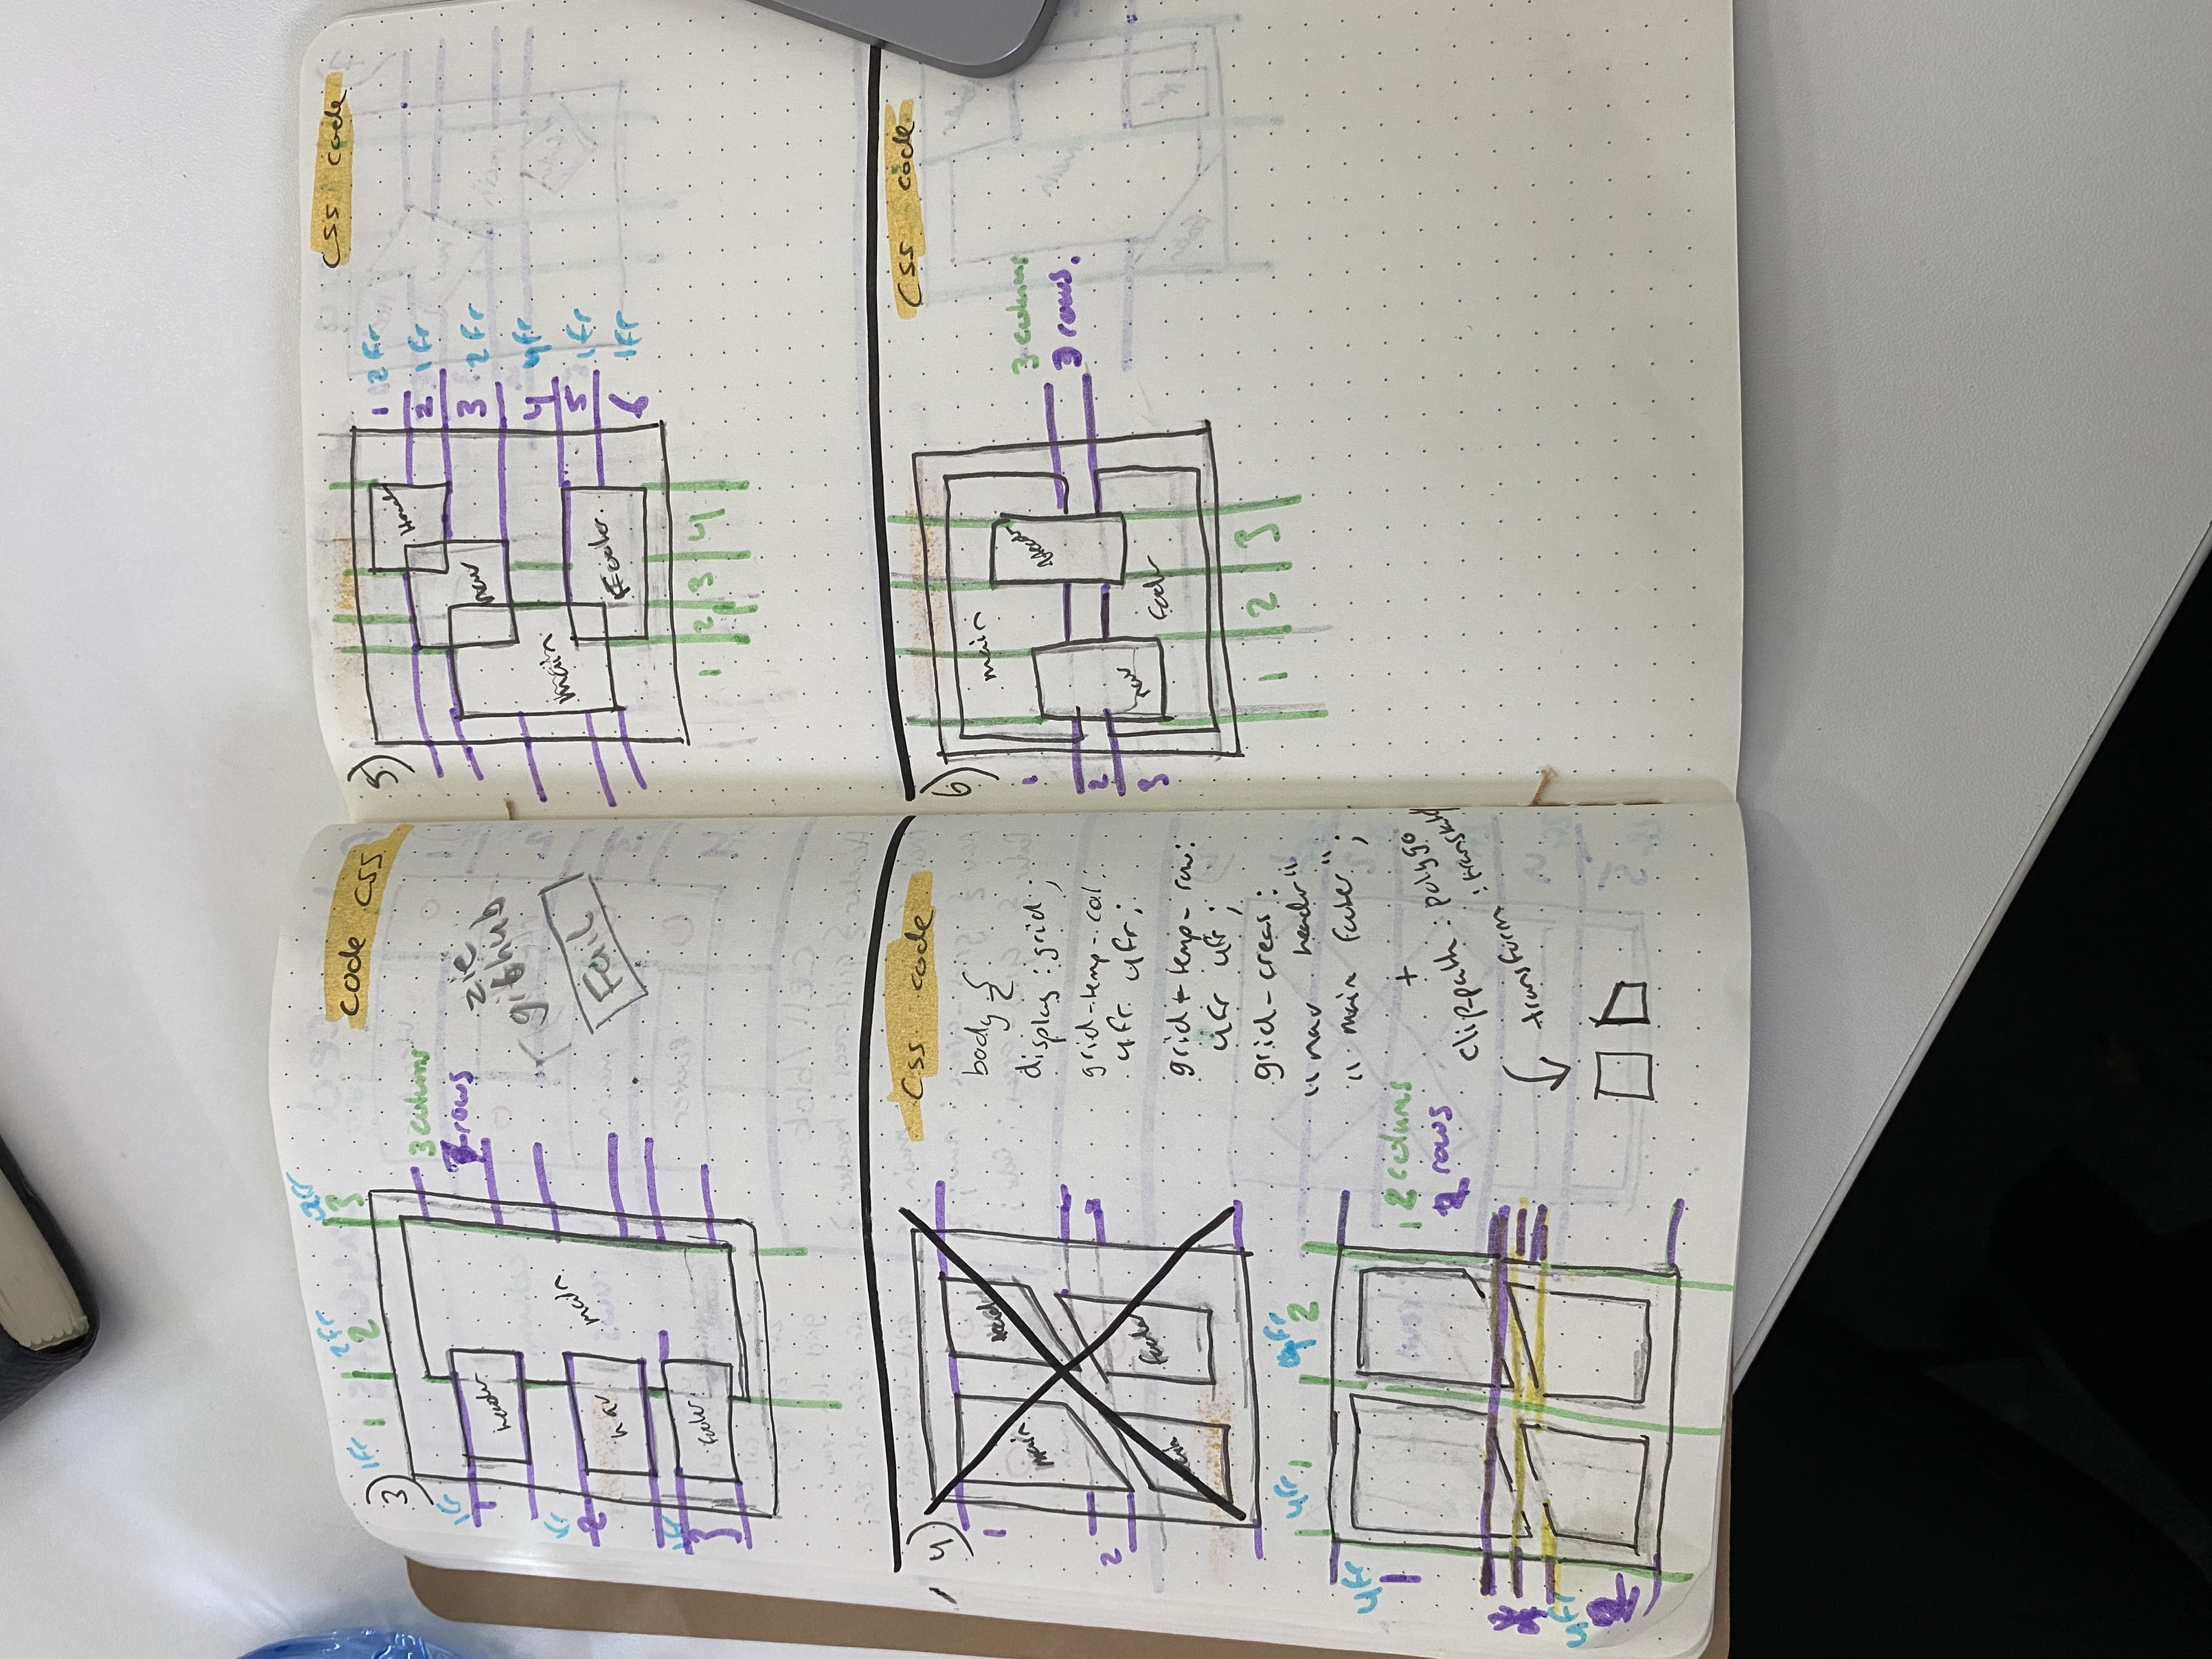 3)
code css
1fr
2fr
1
2
3
3 columns
rows
1fr
1
header
main
zie
github
1fr
2
nav
FAIL
1fr
3
footer
4)
Css code
1
main
header
2
footer
body {
display: grid;
grid-temp-col:
4fr 4fr;
grid-temp-row:
4fr 4fr;
grid-areas:
"nav header"
"main footer";
+
clip-path: polygo
transform
4fr
4fr
1
2
2 columns
2 rows
4fr
1
4fr
2
5)
Css code
Head
1
2fr
2
1fr
nav
3
2fr
main
4
4fr
5
1fr
Footer
6
1fr
1
2
3
4
6)
Css code
1
2
3
main
Head
nav
foot
3 colums
3 rows.
1
2
3